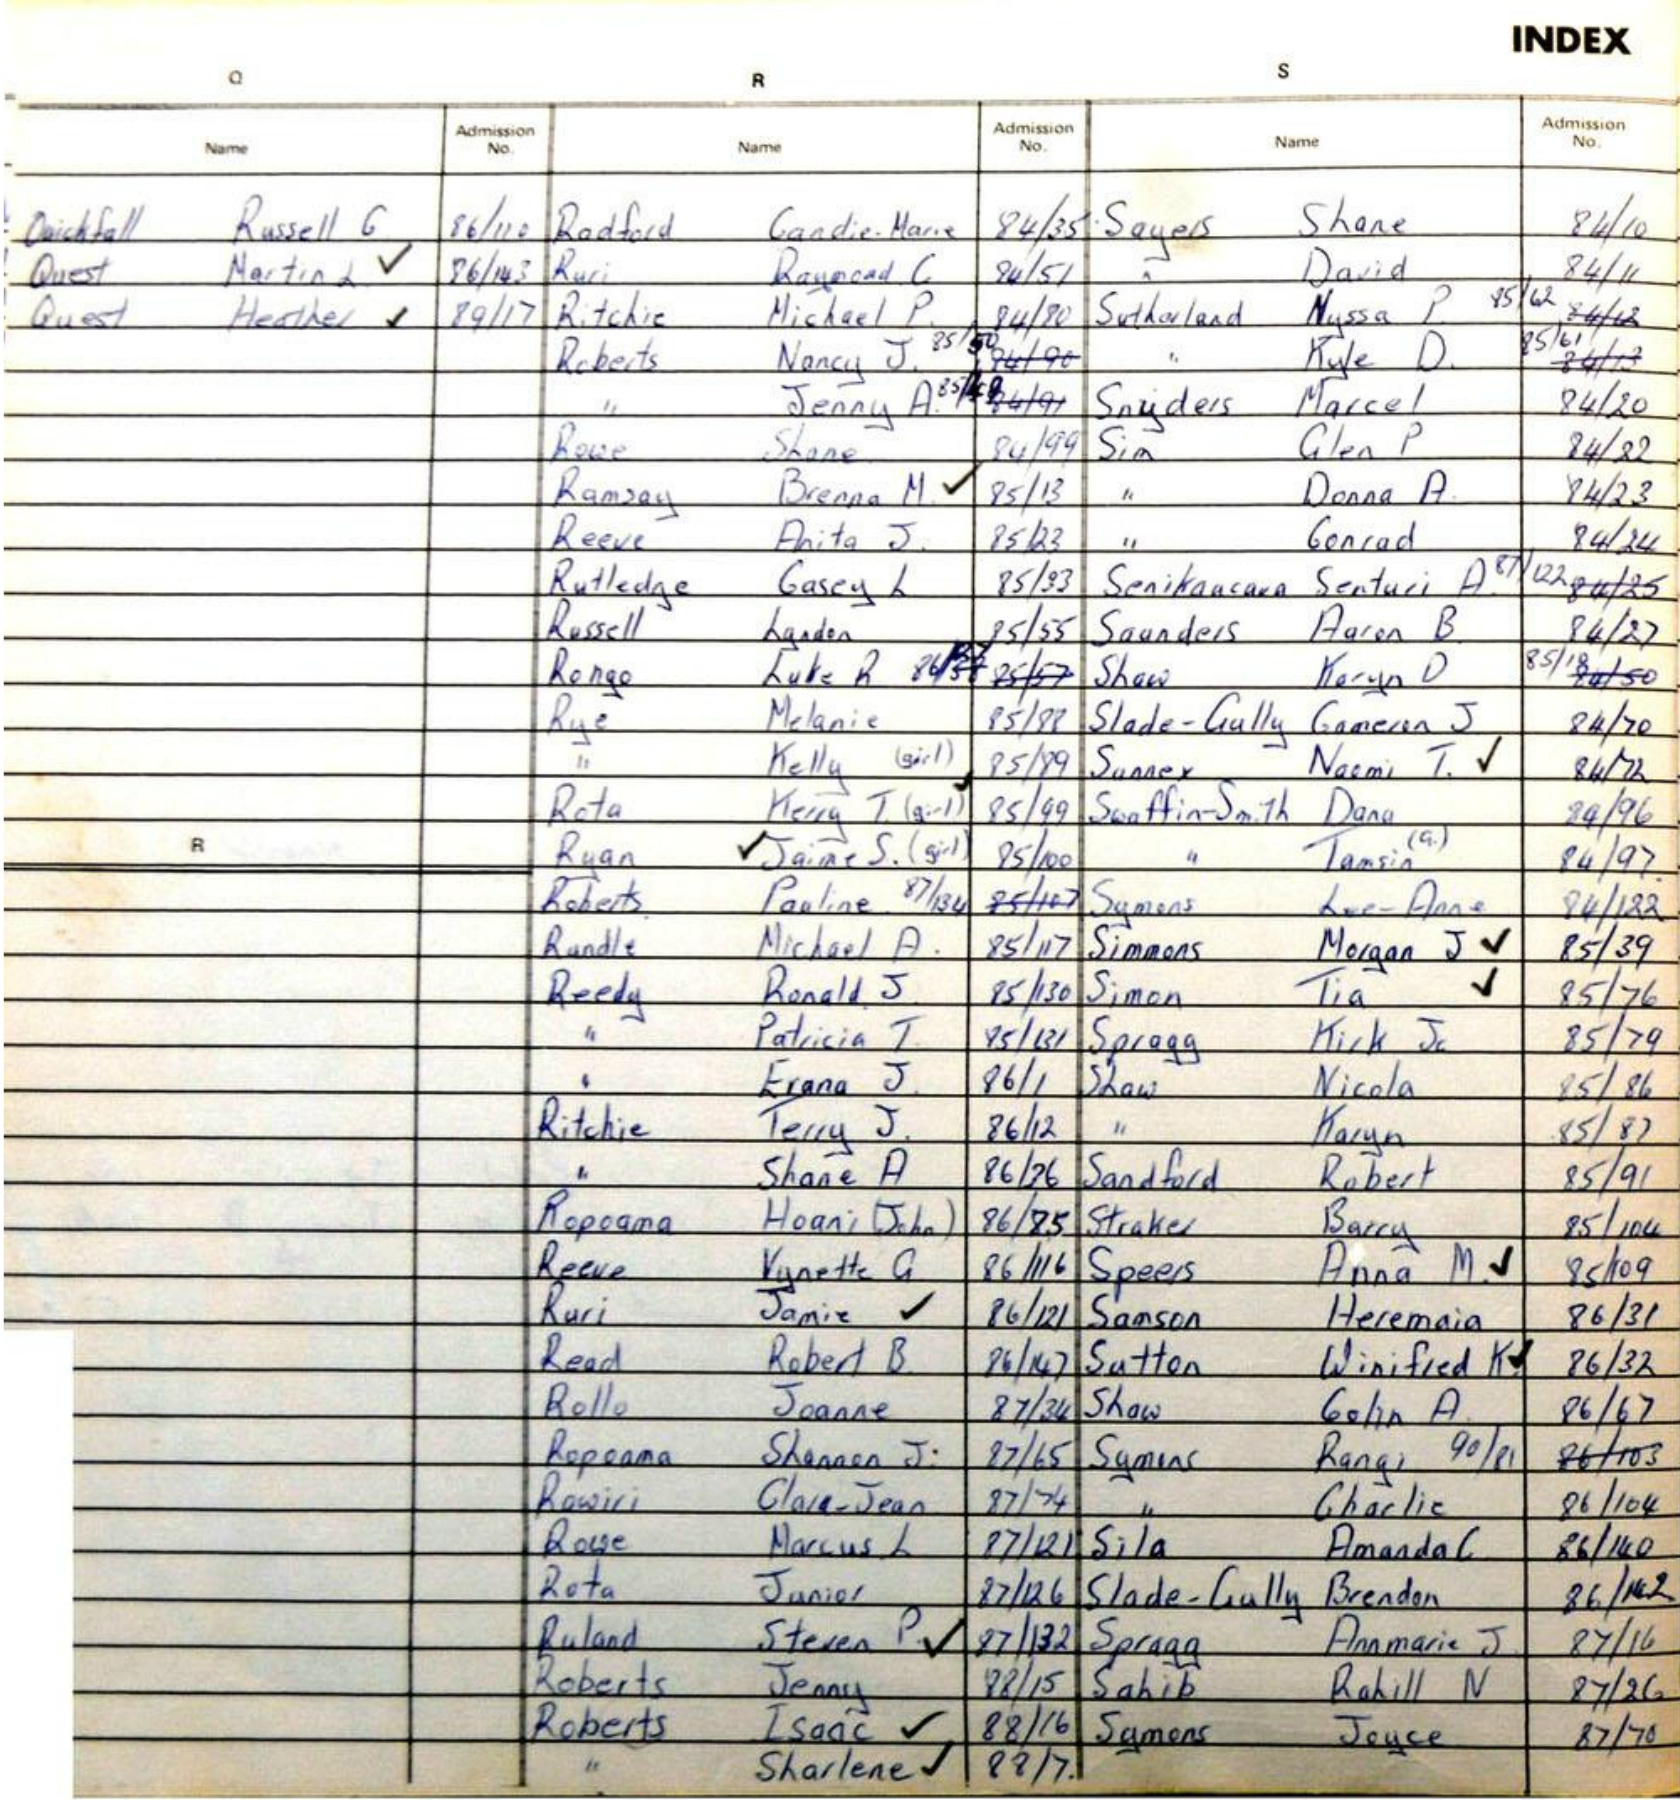 INDEX
Q R S
Name Admission No. Name Admission No. Name Admission No.
Quickfall Russell G 86/110 Radford Candie-Marie 84/35 Sayers Shane 84/10
Quest Martin L ✓ 86/143 Ruri Raymond C 84/51 " David 84/11
Quest Heather ✓ 89/17 Ritchie Michael P. 84/80 Sutherland Nyssa P. 85/62 84/12
Roberts Nancy J. 85/50 84/90 " Kyle D. 85/61 84/13
" Jenny A. 84/91 Snijders Marcel 84/20
Rowe Shane 84/99 Sim Glen P 84/22
Ramsay Brenna M. ✓ 85/13 " Donna A. 84/23
Reeve Anita J. 85/23 " Conrad 84/24
Rutledge Casey L 85/33 Senikaucava Senturi A. 87/122 84/25
Russell Lyndon 85/55 Saunders Aaron B. 84/27
Rongo Luke R 85/57 Shaw Karyn D 85/18 84/50
Rye Melanie 85/88 Slade-Gully Cameron J 84/70
" Kelly (girl) 85/89 Sunnex Naomi T. ✓ 84/72
Rota Kerry T. (girl) ✓ 85/99 Swaffin-Smith Dana 84/96
R Ryan ✓ Jaime S. (girl) 85/100 " Tamsin (G.) 84/97
Roberts Pauline 87/134 85/107 Symons Lee-Anne 84/122
Rundle Michael A. 85/117 Simmons Morgan J ✓ 85/39
Reedy Ronald J 85/130 Simon Tia ✓ 85/76
" Patricia T. 85/131 Spragg Kirk Jc 85/79
" Erana J. 86/1 Shaw Nicola 85/86
Ritchie Terry J. 86/12 " Karyn 85/87
" Shane A 86/26 Sandford Robert 85/91
Ropoama Hoani (John) 86/85 Straker Barry 85/104
Reeve Vynette G 86/116 Speers Anna M. ✓ 85/109
Ruri Jamie ✓ 86/121 Samson Heremaia 86/31
Read Robert B. 86/147 Sutton Winifred K ✓ 86/32
Rollo Joanne 87/34 Shaw Colin A. 86/67
Ropoama Shannon J. 87/65 Symons Rangi 90/81 86/103
Rawiri Clare-Jean 87/74 " Charlie 86/104
Rowe Marcus L 87/121 Sila Amanda C 86/140
Rota Junior 87/126 Slade-Gully Brendon 86/142
Ruland Steven P. ✓ 87/132 Spragg Annmarie J. 87/16
Roberts Jenny 88/15 Sahib Rahill N 87/26
Roberts Isaac ✓ 88/16 Symons Joyce 87/70
" Sharlene ✓ 88/7.